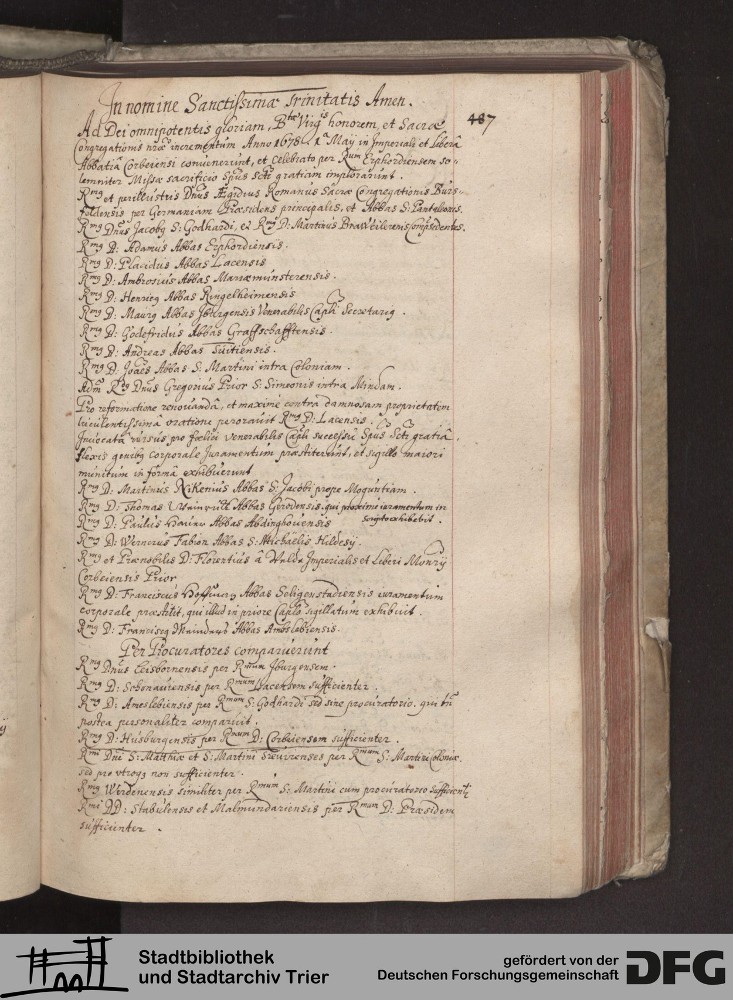 In nomine Sanctissimæ Trinitatis Amen.
487
Ad Dei omnipotentis gloriam, Btæ Virgis honorem, et Sacræ
Congregationis nræ incrementum Anno 1678 1a Maÿ in Imperiali et liberâ
Abbatiâ Corbeiensi convenerunt, et celebrato per Rmum Erphordiensem so-
lemniter Missæ sacrificio Spus Scti gratiam implorarunt.
Rmus et perillustris Dnus Ægidius Romanus Sacræ Congregationis Burs-
feldensis per Germaniam Præsidens principalis, et Abbas S: Pantaleonis.
Rmus Dnus Jacobus S: Godhardi, et Rmus D: Martinus Braweilerensis Compræsidentes.
Rmus D: Adamus Abbas Erphordiensis.
Rmus D: Placidus Abbas Lacensis
Rmus D: Ambrosius Abbas Mariæmunsterensis.
Rmus D: Henricus Abbas Ringelheimensis
Rmus D: Maurus Abbas Iburgensis Venerabilis Capli Secretarius.
Rmus D: Godefridus Abbas Graffschafftensis.
Rmus D: Andreas Abbas Tuitiensis.
Rmus D: Joães Abbas S: Martini intra Coloniam.
Adm Rdus Dnus Gregorius Prior S: Simeonis intra Mindam.
Pro reformatione renovandâ, et maximè contra damnosam proprietatem
luculentissimâ oratione peroravit Rmus D: Lacensis.
Invocatâ rursus pro foelici venerabilis Capli successu Spus Scti gratiâ.
flexis genibus corporale Juramentum præstiterunt, et sigillo maiori
munitum in formâ exhibuerunt
Rmus D: Martinus Abbas S: Jacobi prope Moguntiam.
Rmus D: Thomas Abbas Gerodensis. qui proximè iuramentum in
scripto exhibebit.
Rmus D: Paulus Abbas Abdinghouensis
Rmus D: Wernerus Fabion Abbas S: Michaelis Hildesÿ.
Rmus et Prænobilis D: Florentius â Velde Imperialis et Liberi Monrÿ
Corbeiensis Prior
Rmus D: Franciscus Hoffman Abbas Seligenstadiensis iuramentum
corporale præstitit, qui illud in priore Caplo sigillatum exhibuit.
Rmus D: Franciscus Abbas
Per Procuratores comparuerunt
Rmus Dnus Leisbornensis per Rmum Iburgensem.
Rmus D: Schonaviensis per Rmum Lacensem sufficienter.
Rmus D: Ameslebiensis per Rmum S: Godhardi sed sine procuratorio. qui tn
postea personaliter comparuit.
Rmus D: Husburgensis per Rmum D: Corbeiensem sufficienter.
Rmi Dni S: Matthiæ et S: Martini Treuirenses per Rmum S: Martini Coloniæ.
sed pro utroq non sufficienter.
Rmus Werdenensis similiter per Rmum S: Martini cum procuratorio sufficienti
Rmi DD: Stabulensis et Malmundariensis per Rmum D: Præsidem
sufficienter.
Stadtbibliothek
und Stadtarchiv Trier
gefördert von der
Deutschen Forschungsgemeinschaft
DFG